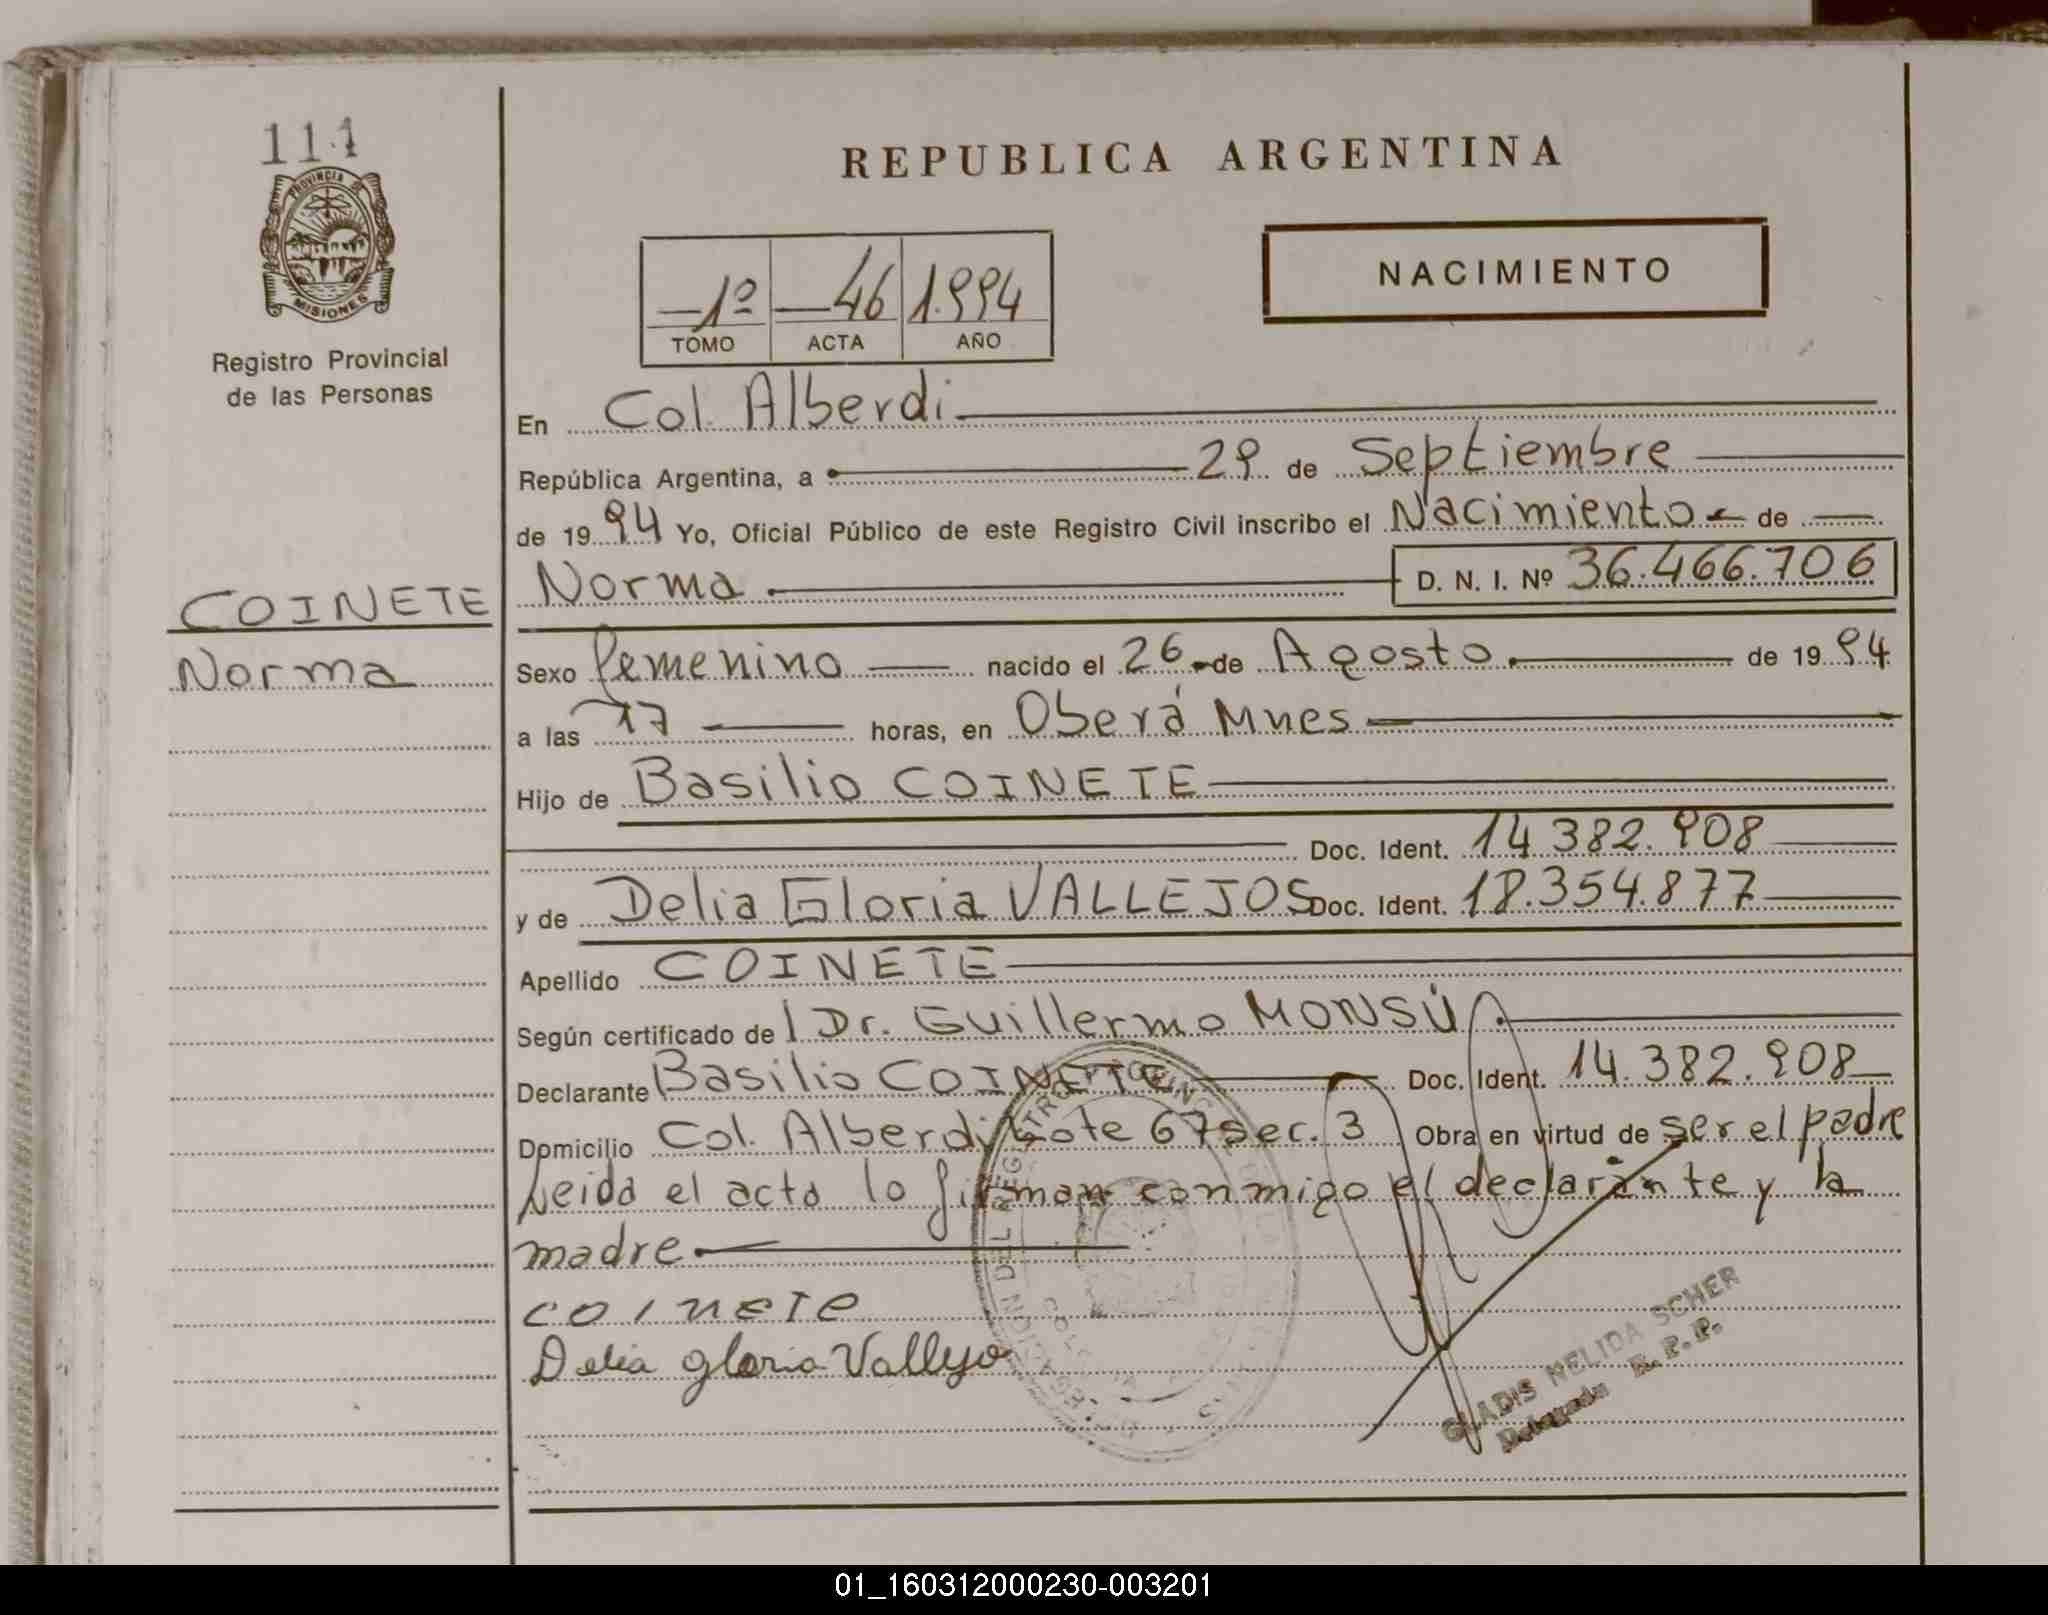 111
PROVINCIA DE
MISIONES
Registro Provincial
de las Personas
COINETE
Norma
REPUBLICA ARGENTINA
1º 46 1.994
TOMO ACTA AÑO
NACIMIENTO
En Col. Alberdi
República Argentina, a 29 de Septiembre
de 1994 Yo, Oficial Público de este Registro Civil inscribo el Nacimiento de
Norma D. N. I. Nº 36.466.706
Sexo femenino nacido el 26 de Agosto de 1994
a las 17 horas, en Oberá Mnes
Hijo de Basilio COINETE
Doc. Ident. 14.382.908
y de Delia Gloria VALLEJOS Doc. Ident. 18.354.877
Apellido COINETE
Según certificado de Dr. Guillermo MONSÚ
Declarante Basilio COINETE Doc. Ident. 14.382.908
Domicilio Col. Alberdi Lote 67 sec. 3 Obra en virtud de ser el padre
Leida el acta lo firman conmigo el declarante y la
madre
COINETE
Delia gloria Vallejo
GLADIS MELIDA SCHER
Delegada R. P. P.
01_160312000230-003201